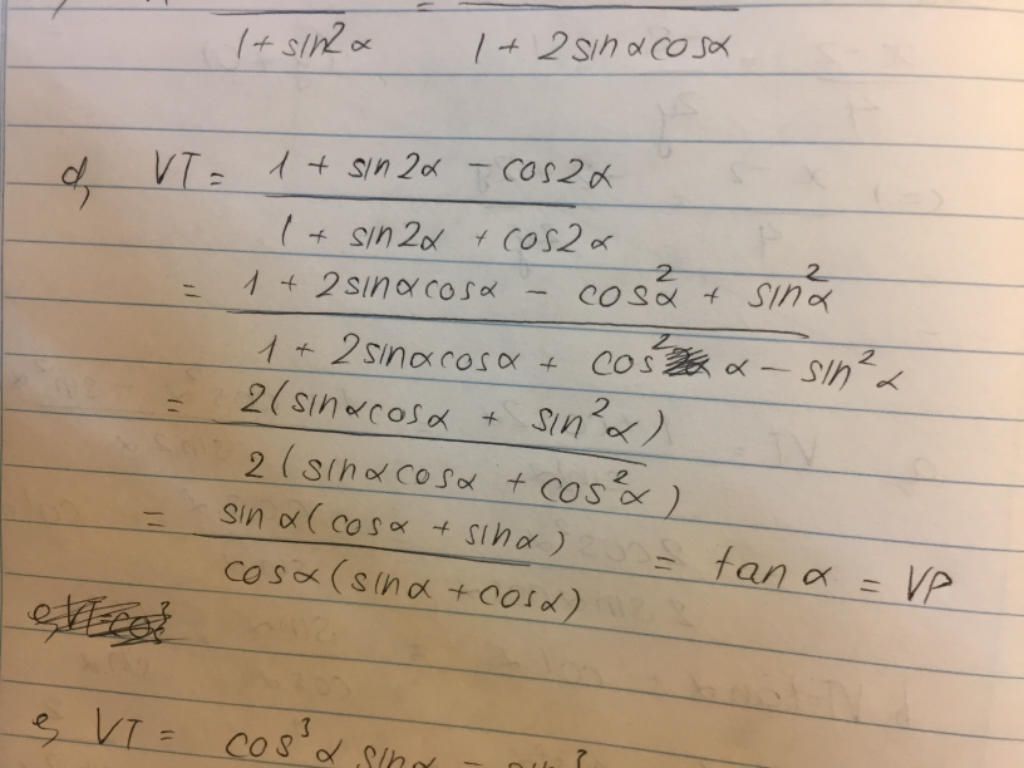 1 + sin²α = 1 + 2sinαcosα
d, VT = 1 + sin2α - cos2α
1 + sin2α + cos2α
= 1 + 2sinαcosα - cos²α + sin²α
1 + 2sinαcosα + cos²α - sin²α
= 2(sinαcosα + sin²α)
2(sinαcosα + cos²α)
= sinα(cosα + sinα) = tanα = VP
cosα(sinα + cosα)
e, VT = cos³α sinα - sin³